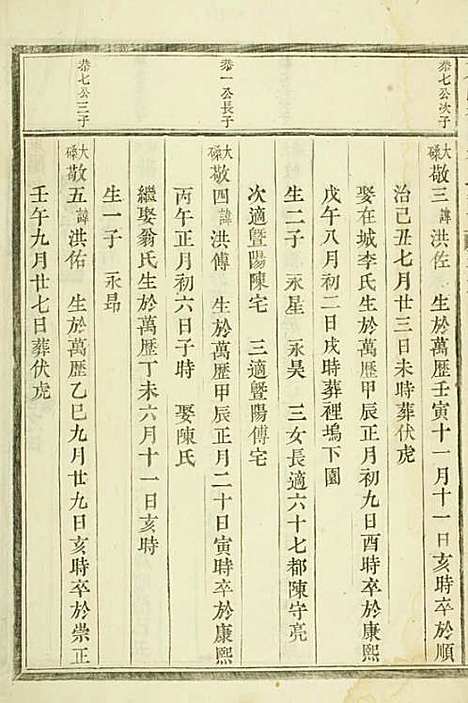 恭七公次子
大磉敬三諱洪佐　生於萬歷壬寅十一月十一日亥時卒於順
治己丑七月廿三日未時葬伏虎
娶在城李氏生於萬歷甲辰正月初九日酉時卒於康熙
戊午八月初二日戌時葬裡塢下園
生二子　永星　永昊　三女長適六十七都陳守亮
次適暨陽陳宅　三適暨陽傅宅
恭一公長子
大磉敬四諱洪傅　生於萬歷甲辰正月二十日寅時卒於康熙
丙午正月初六日子時　娶陳氏
繼娶翁氏生於萬歷丁未六月十一日亥時
生一子　永昻
恭七公三子
大磉敬五諱洪佑　生於萬歷乙巳九月廿九日亥時卒於崇正
壬午九月廿七日葬伏虎